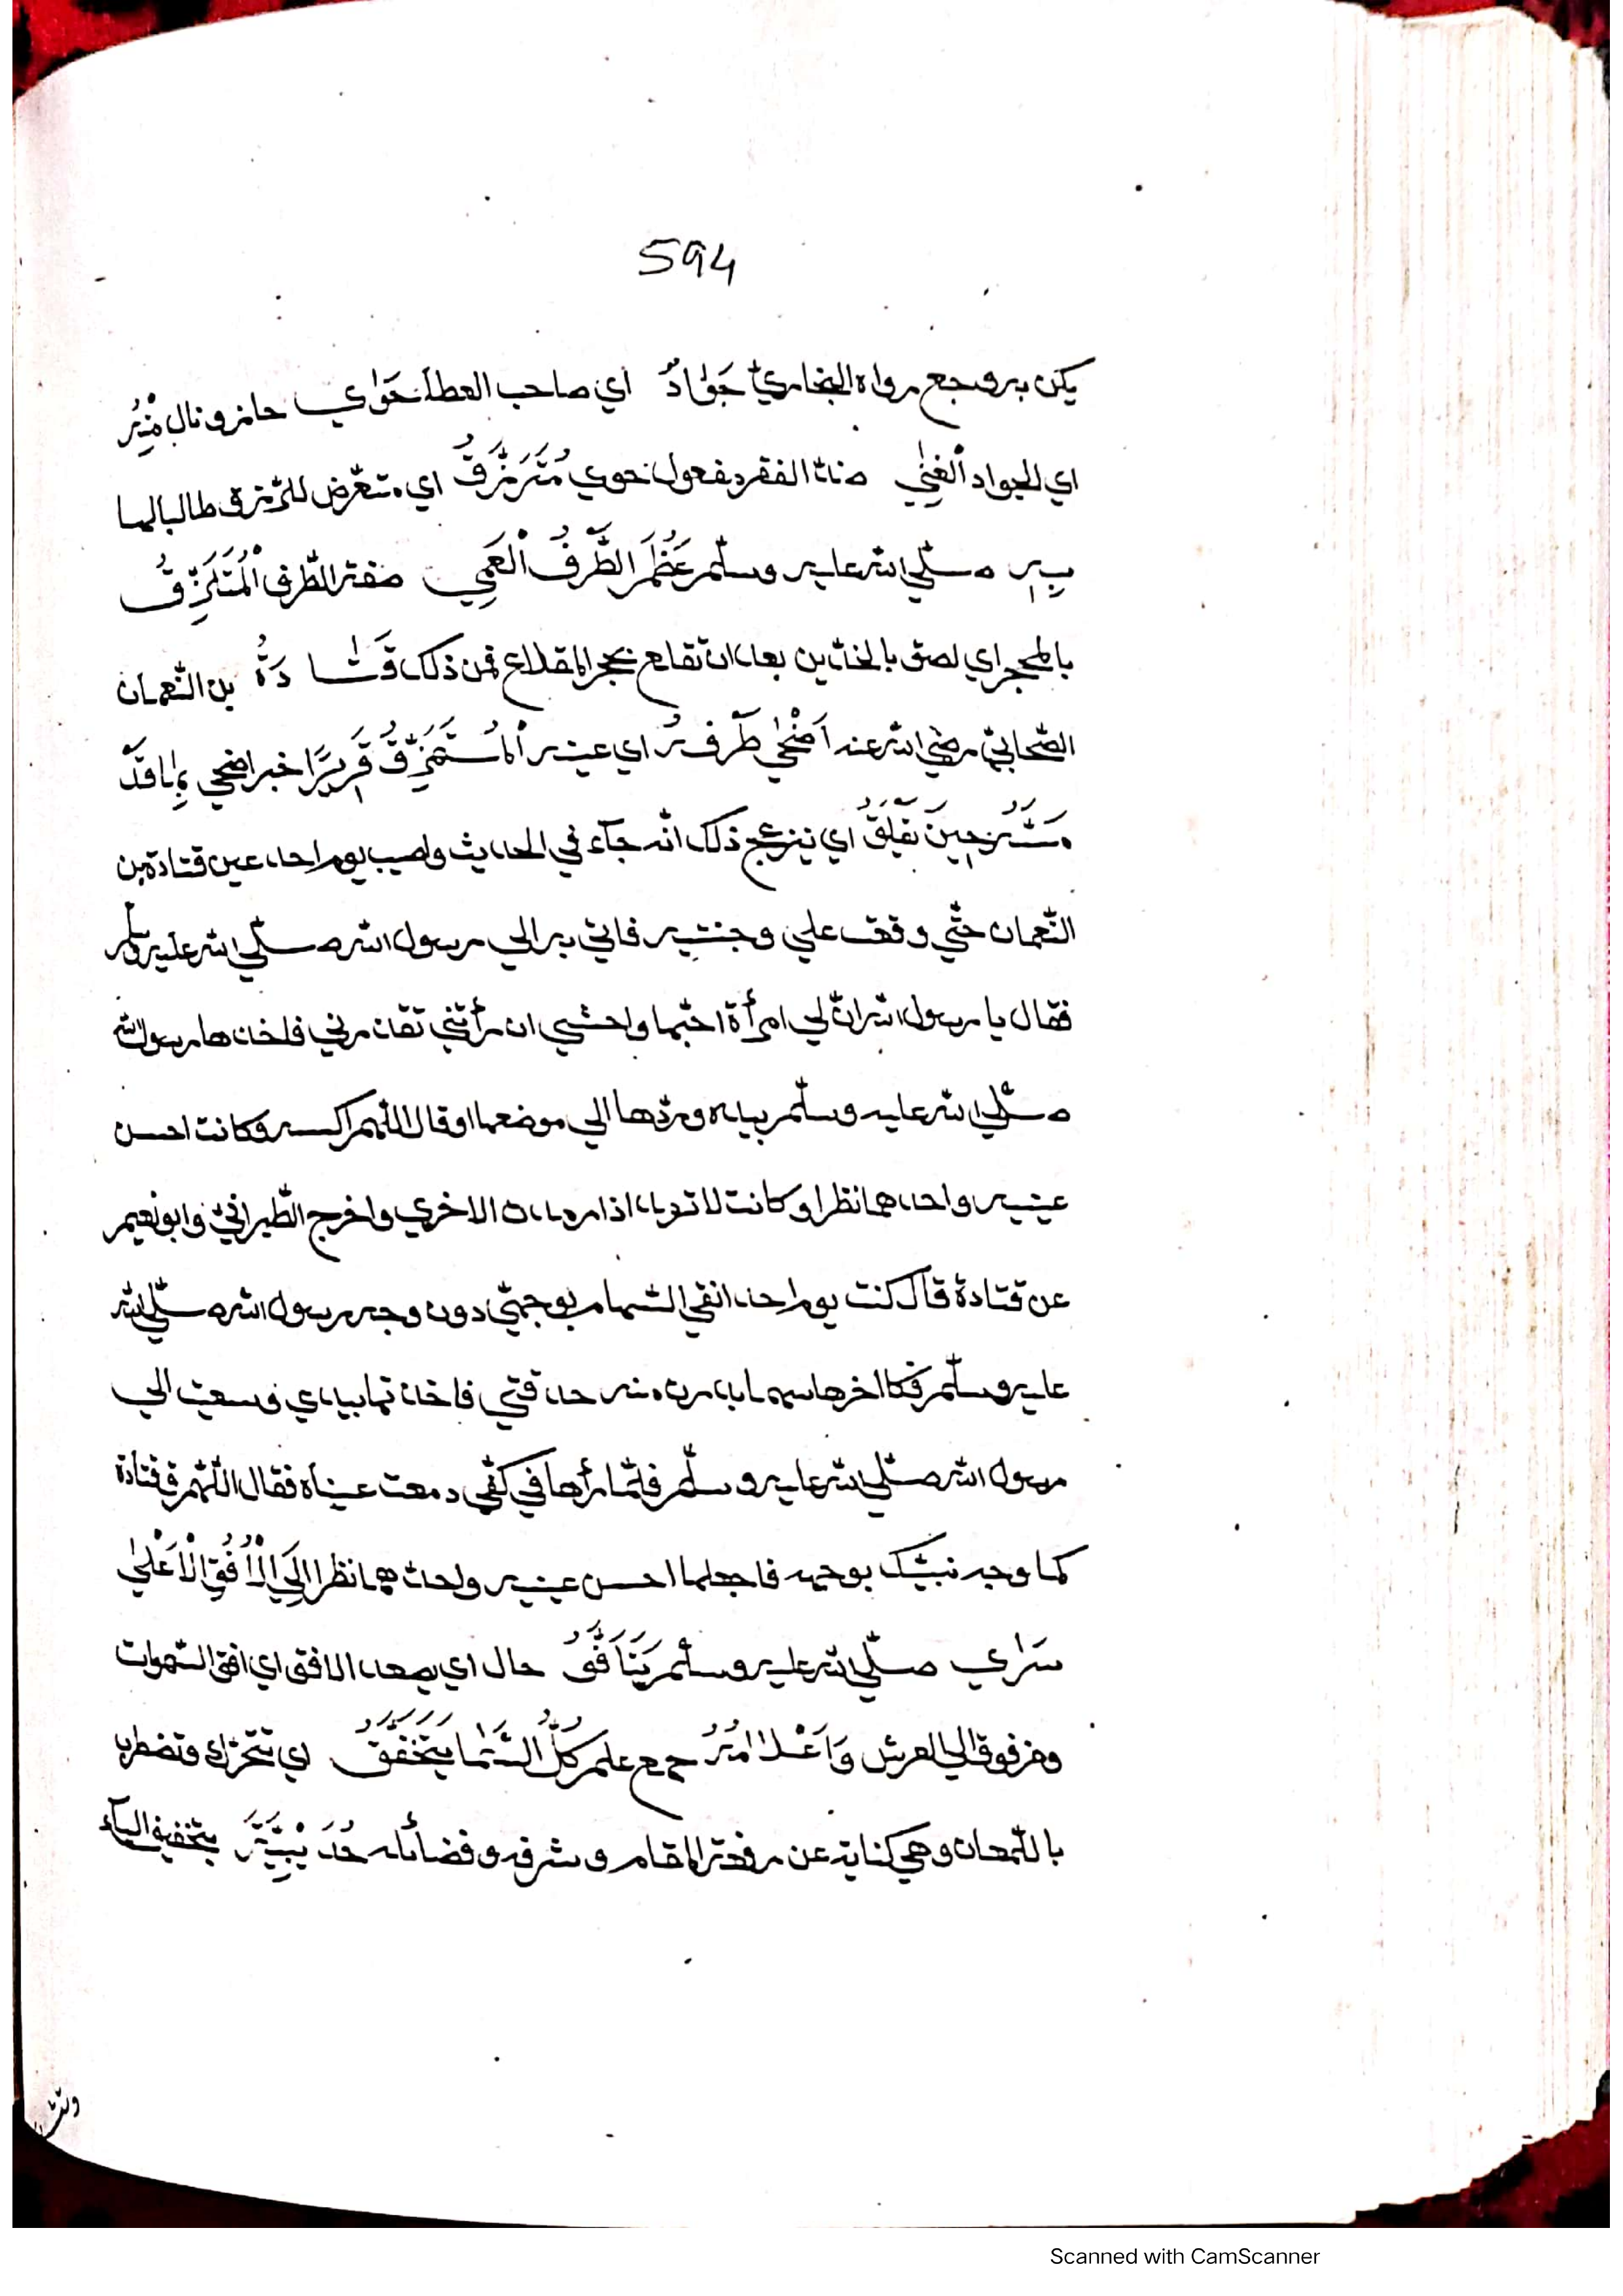 594
يكن به وجع رواه البخاريّ جَوَادٌ اي صاحب العطآ حَوٰي حاز ونال مِنْهُ
اي الجواد ٱلْغِنٰي ضدّ الفقر مفعول حوي مُتَرَزِّقُ اي متعّرض للرّزق طالبا لها
بِهٖ صلّي الله عليه وسلّم عَظُمَ الطَّرْفُ ٱلْعَمِي صفة الطّرف ٱلْمُتَلَزِّقُ
بالمحجر اي لصق بالخدّين بعد ان تقلع بحجر المقلاع فمن ذلك قَتَادَةُ بن النّعمان
الصّحابيّ رضي الله عنه اَضْحٰي طَرْفُهُ اي عينه ٱلْمُسْتَمَزِّقُ قَرِيرًا خبر اضحي بِمَا قَدْ
مَسَّهُ حِينَ يَقْلَقُ اي ينزعج ذلك انّه جآء في الحديث واصيب يوم احد عين قتادة بن
النّعمان حتّي وقعت علي وجنته فاتي به الي رسول الله صلّي الله عليه وسلّم
فقال يا رسول الله انّ لي امرأة احبّها واخشي ان رأتني تقذرني فاخذها رسول الله
صلّي الله عليه وسلّم بيده وردّها الي موضعها وقال اللّهم اكسه وكانت احسن
عينيه واحدهما نظرا وكانت لا ترمد اذا رمدت الاخري واخرج الطّبرانيّ وابو نعيم
عن قتادة قال كنت يوم احد اتقي السّهام بوجهي دون وجه رسول الله صلّي الله
عليه وسلّم فكا اخرها سهما بدرت منه حدقتي فاخذتها بيدي وسعيت الي
رسول الله صلّي الله عليه وسلّم فلمّا رأها في كفّي دمعت عيناه فقال اللّهم ق قتادة
كما وجه نبيّك بوجهه فاجعلها احسن عينيه واحدّهما نظرا اِلَي الْاُفُقِ الْاَعْلٰي
سَرٰي صلّي الله عليه وسلّم يَتَاَفَّقُ حال اي يصعد الافق اي افق السّموات
وهو فوق الي العرش وَاَعْلَامُهُ جمع علم كُلَّ السَّمَا يَتَخَفَّقُ اي تتحرّك وتضطرب
باللّمعان وهي كناية عن رفعة المقام وشرفه وفضائله حُدَ يْبِيَّةٌ بتخفيف اليآء